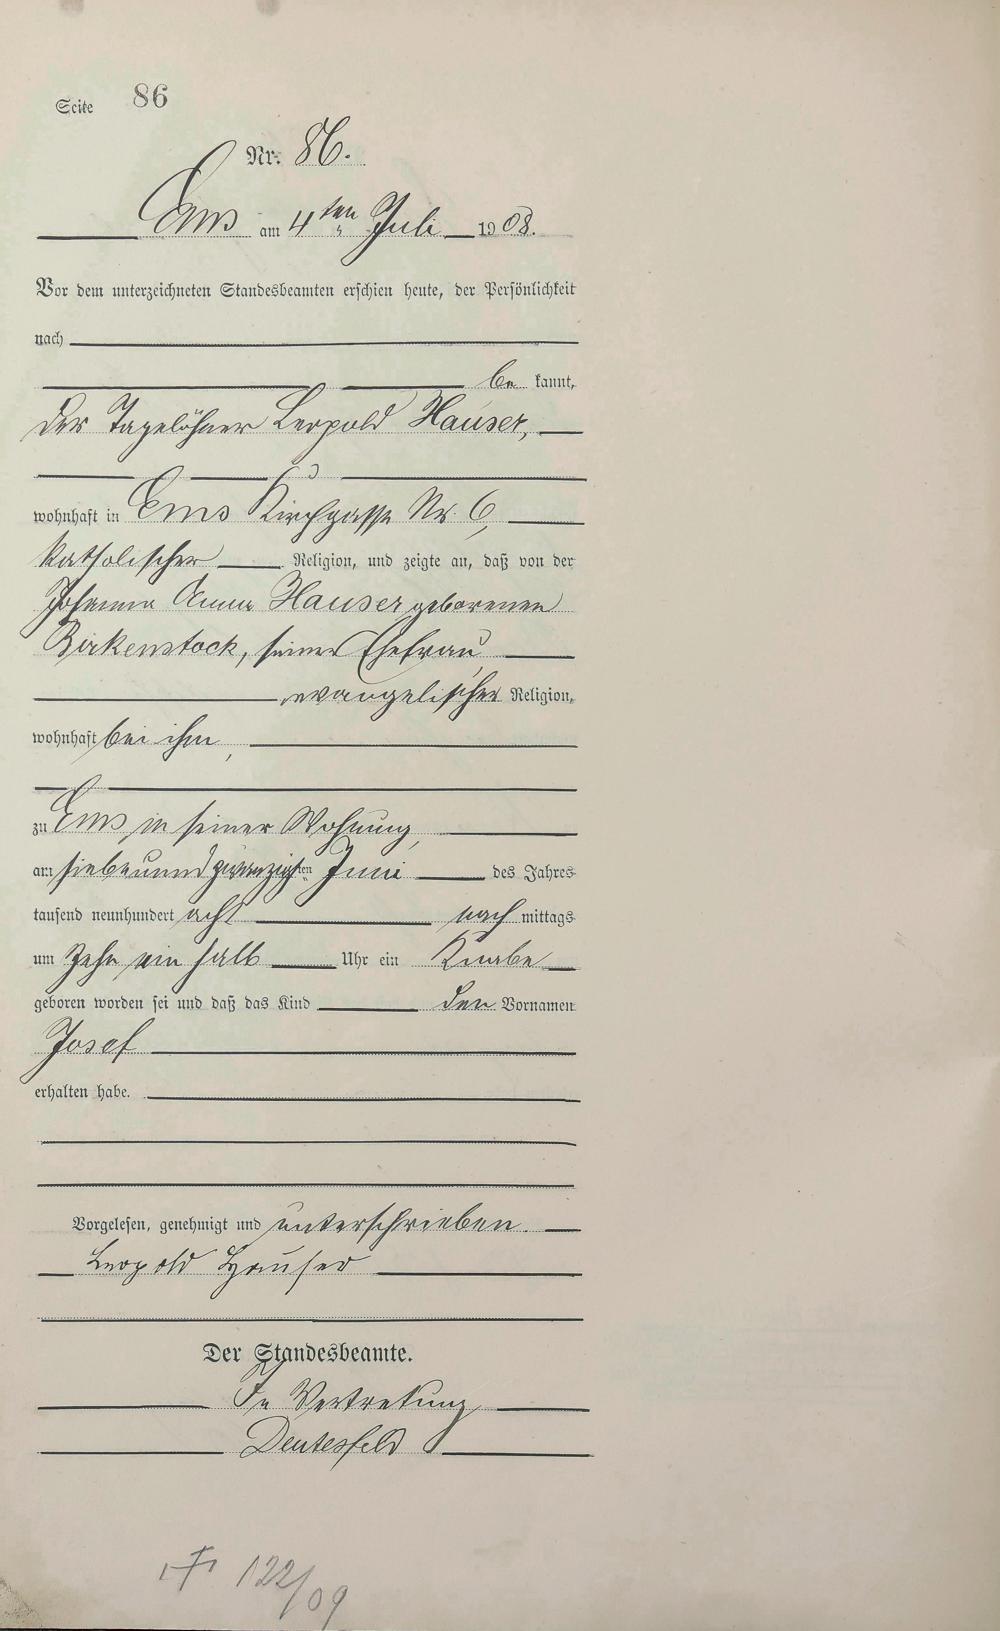 Seite 86
Nr. 86.
Ems am 4ten Juli 1908.
Vor dem unterzeichneten Standesbeamten erschien heute, der Persönlichkeit
nach
be kannt,
der Tagelöhner Leopold Hauser,
wohnhaft in Ems Kirchgasse Nr. 6,
katholischer Religion, und zeigte an, daß von der
Johanna Anna Hauser geborenen
Birkenstock, seiner Ehefrau,
evangelischer Religion,
wohnhaft bei ihm,
zu Ems in seiner Wohnung,
am siebenundzwanzigsten Juni des Jahres
tausend neunhundert acht nach mittags
um zehn ein halb Uhr ein Knabe
geboren worden sei und daß das Kind den Vornamen
Josef
erhalten habe.
Vorgelesen, genehmigt und unterschrieben.
Leopold Hauser
Der Standesbeamte.
In Vertretung
Deutesfeld
122/09